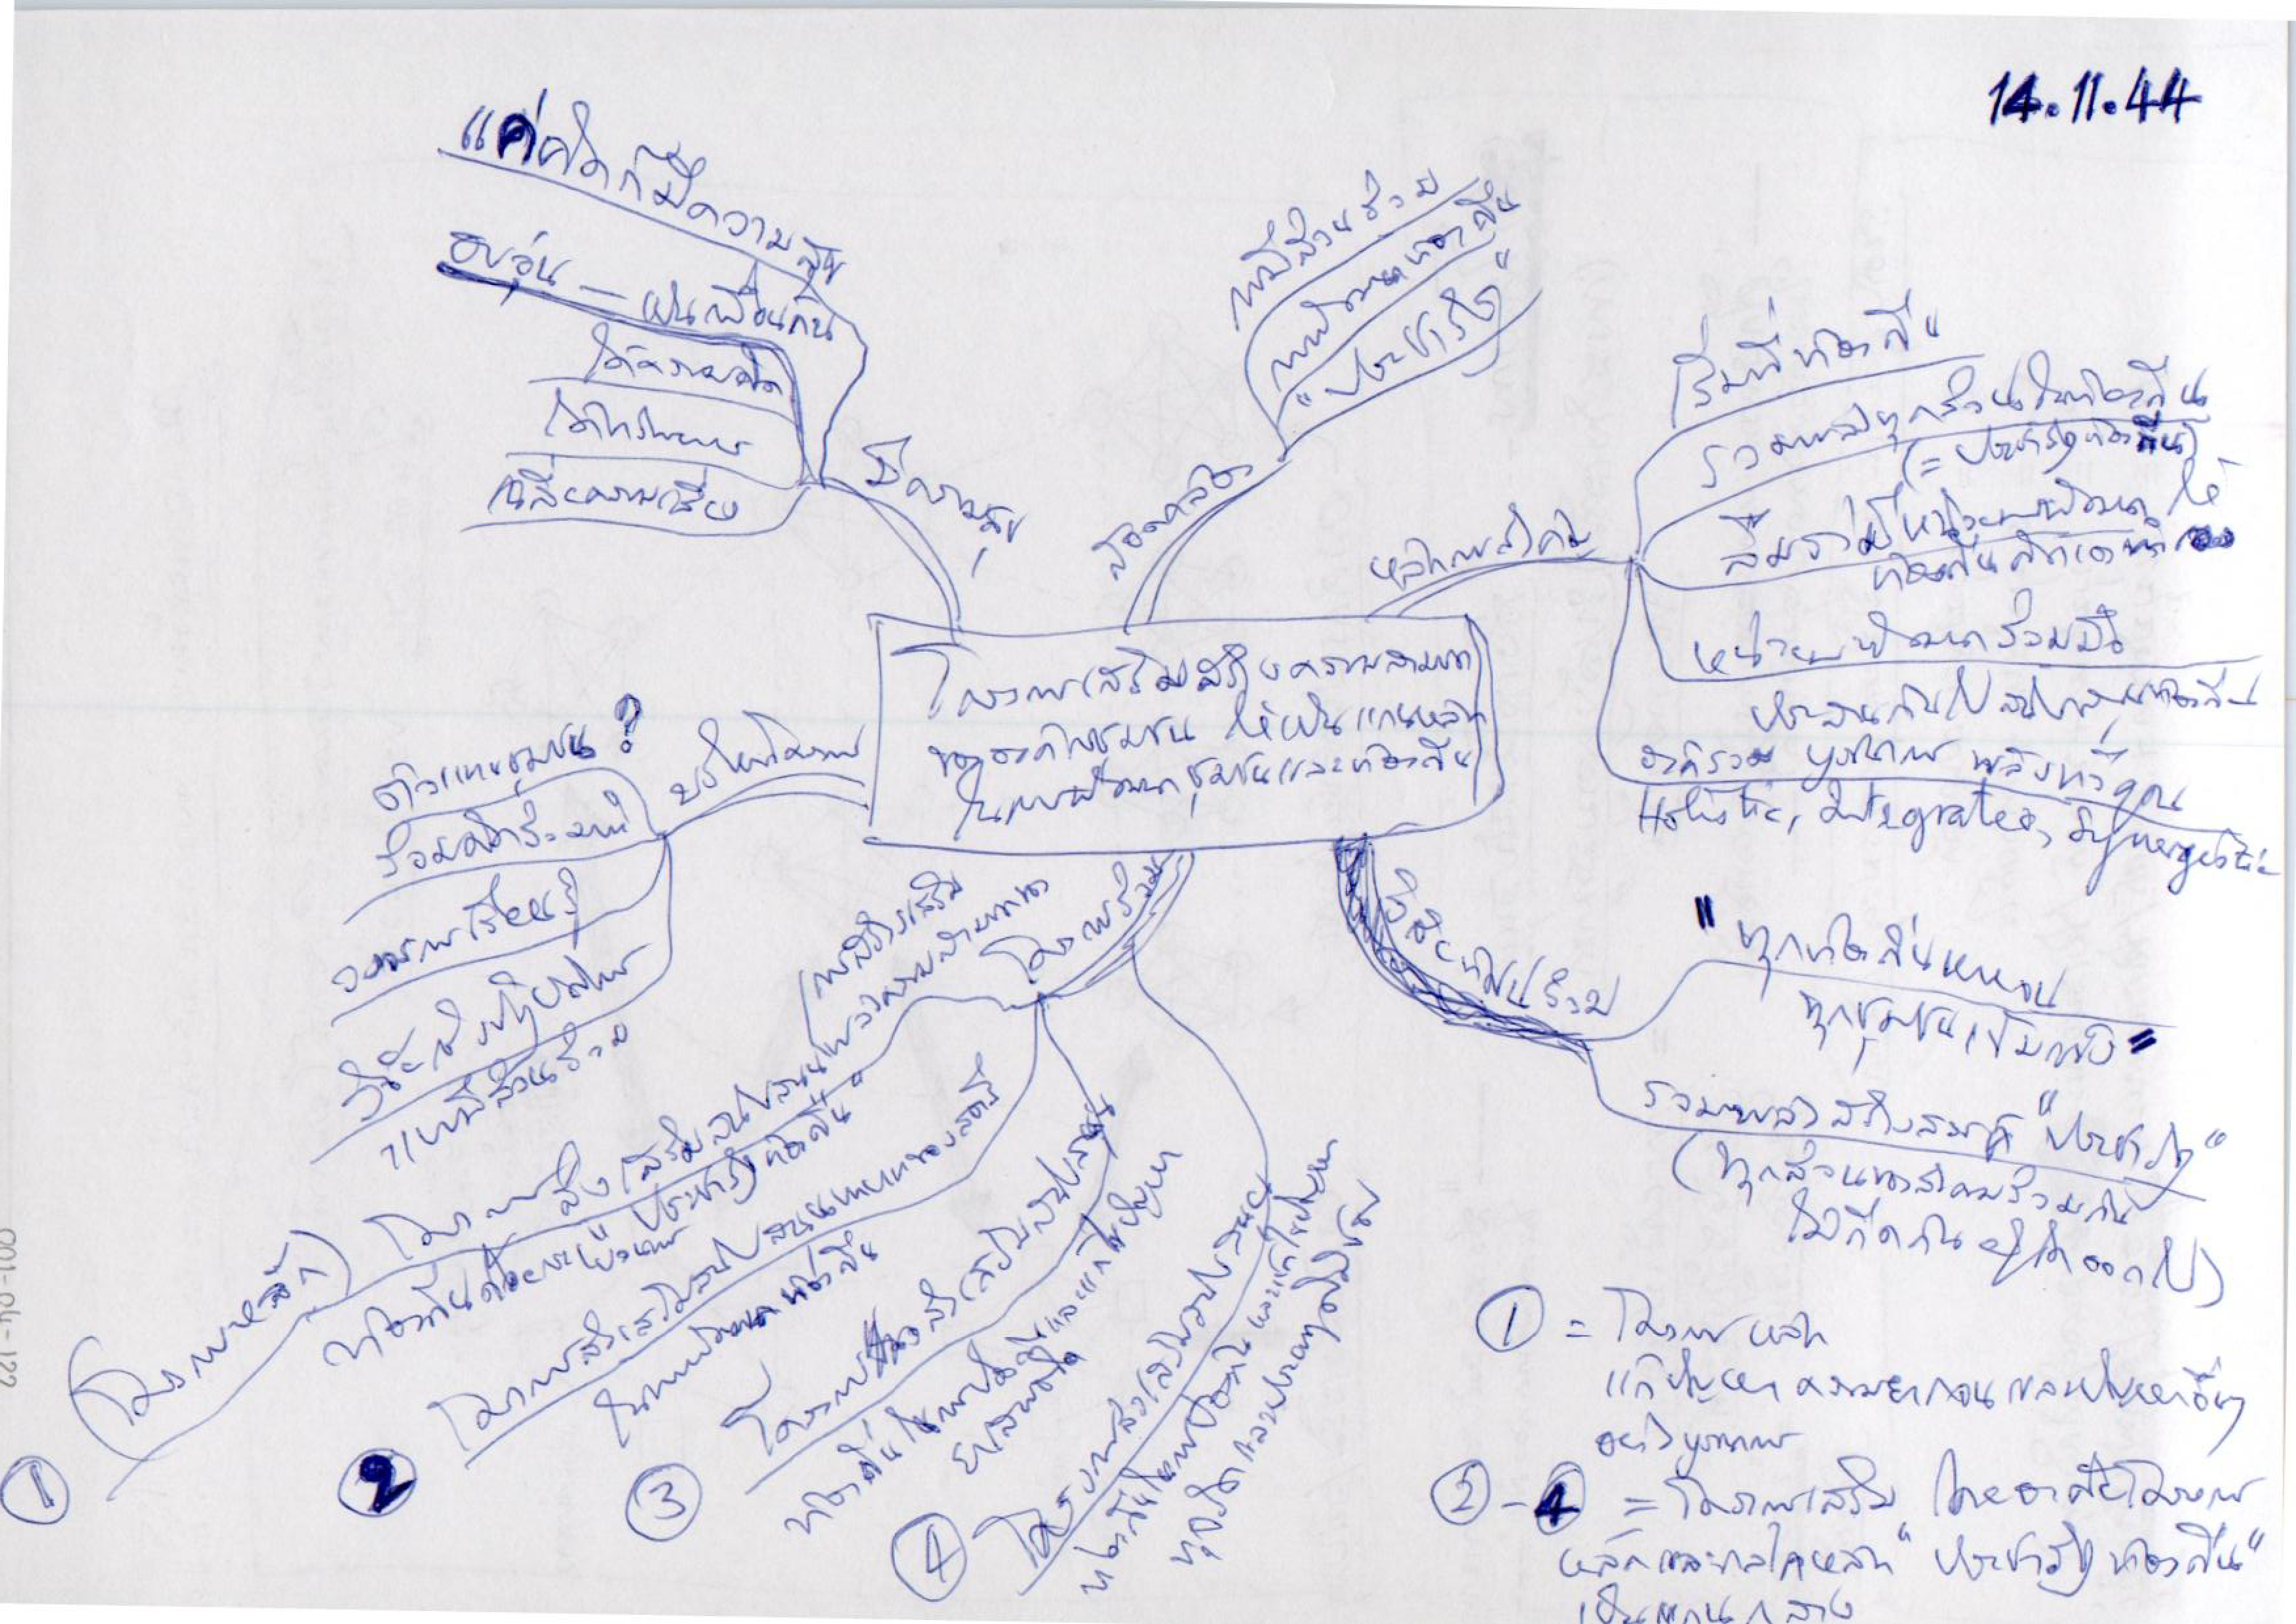 14.11.44
"แค่คิดก็มีความสุข
อบอุ่น – เป็นเพื่อนกัน
ได้ความคิด
มีความสุข
การมีส่วนร่วม
การพัฒนาท้องถิ่น
"ประชารัฐ"
สอดคล้อง
หลักการสำคัญ
เริ่มที่ท้องถิ่น
รวมพลังทุกส่วนในท้องถิ่น
(= ประชารัฐท้องถิ่น)
หน่วยพัฒนาร่วมมือ
ประสานกันไปสนับสนุนท้องถิ่น
องค์รวม บูรณาการ พลังทวีคูณ
Holistic, Integrated, Synergistic
โครงการเสริมสร้างความสามารถ
ขององค์กรชุมชน ให้เป็นแกนหลัก
ในการพัฒนาชุมชนและท้องถิ่น
บริหารโครงการ
ตัวแทนชุมชน?
ร่วมคิดร่วมทำ
ขบวนการเรียนรู้
วิจัยเชิงปฏิบัติการ
แบบมีส่วนร่วม
โครงการร่วม
วิสัยทัศน์ร่วม
"ทุกท้องถิ่น
ทุกชุมชนเข้มแข็ง"
รวมพลังสร้างสรรค์ "ประชารัฐ"
(ทุกส่วนของสังคมร่วมกัน
ไม่กีดกันผู้ใดออกไป)
① (โครงการหลัก) โครงการส่งเสริมสนับสนุน
ท้องถิ่นด้วยกระบวนการ "ประชารัฐท้องถิ่น"
② โครงการส่งเสริมสนับสนุนบทบาทของสตรี
ในการพัฒนาท้องถิ่น
③ โครงการส่งเสริมสนับสนุน
ท้องถิ่นในการป้องกันและแก้ไขปัญหา
ยาเสพติด
④ โครงการส่งเสริมสนับสนุน
ท้องถิ่นในการป้องกันและแก้ไขปัญหา
ทุจริตและประพฤติมิชอบ
① = โครงการหลัก
แก้ปัญหาความยากจนและปัญหาอื่นๆ
อย่างบูรณาการ
② - 4 = โครงการเสริม โดยอาศัยโครงการ
หลักและกลไกหลัก "ประชารัฐท้องถิ่น"
เป็นแกนกลาง
001-04-122